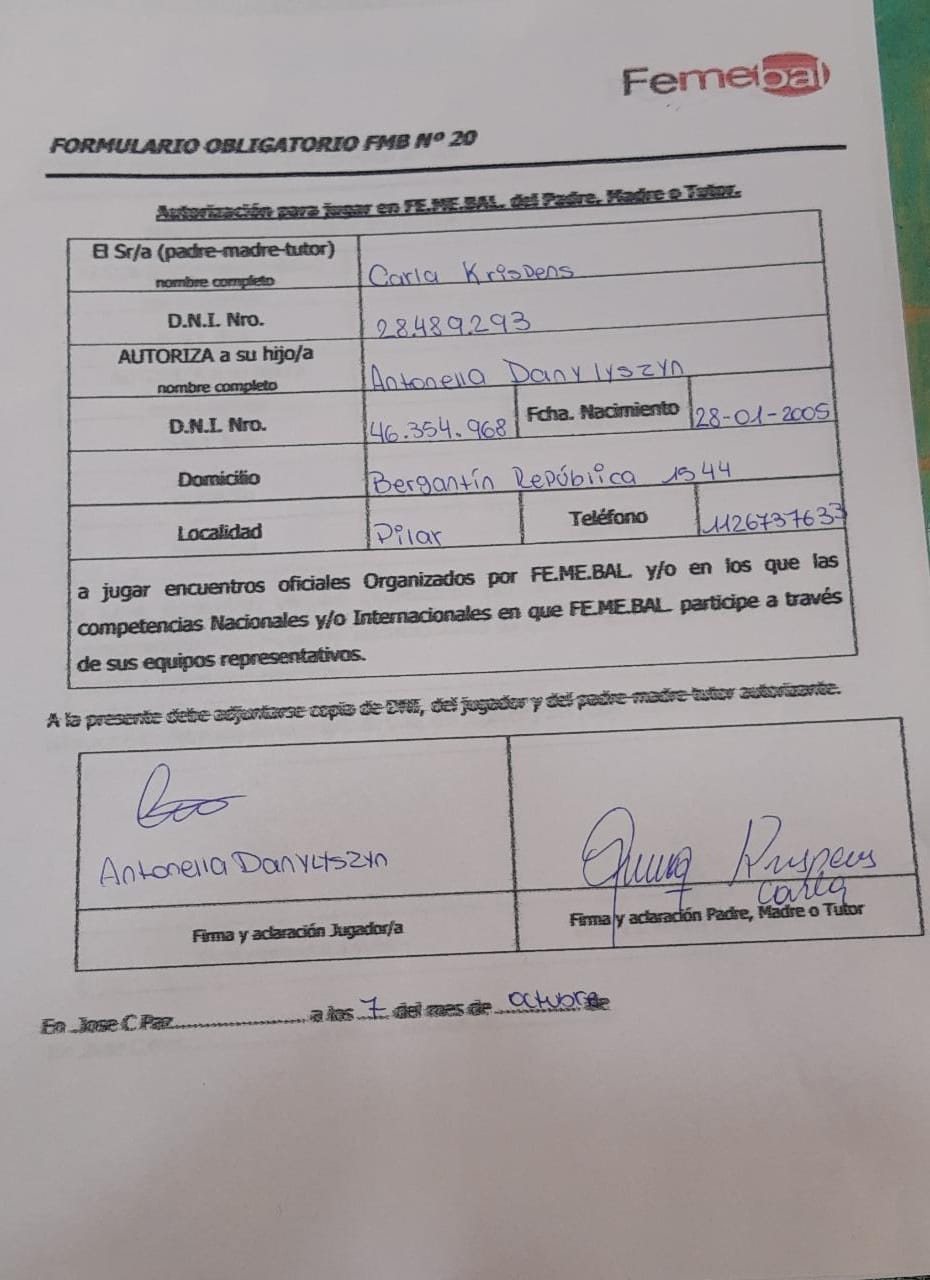 Femebal
FORMULARIO OBLIGATORIO FMB Nº 20
Autorización para jugar en FE.ME.BAL. del Padre, Madre o Tutor.
El Sr/a (padre-madre-tutor)
nombre completo
Carla Krispens
D.N.I. Nro.
28.489.293
AUTORIZA a su hijo/a
nombre completo
Antonella Danylyszyn
D.N.I. Nro.
46.354.968
Fcha. Nacimiento
28-01-2005
Domicilio
Bergantín República 1544
Localidad
Pilar
Teléfono
1126737633
a jugar encuentros oficiales Organizados por FE.ME.BAL. y/o en los que las
competencias Nacionales y/o Internacionales en que FE.ME.BAL. participe a través
de sus equipos representativos.
A la presente debe adjuntarse copia de DNI, del jugador y del padre-madre-tutor autorizante.
Antonella Danylyszyn
Carla
Firma y aclaración Jugador/a
Firma y aclaración Padre, Madre o Tutor
En Jose C Paz.......................... a los 7 del mes de octubre de